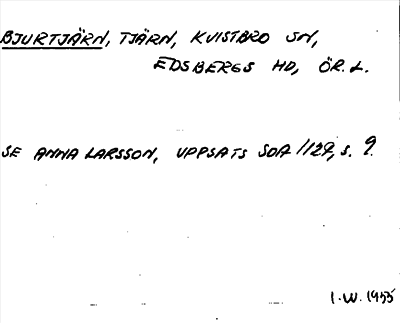 BJURTJÄRN, TJÄRN, KVISTBRO SN,
EDSBERGS HD, ÖR. L.
SE ANNA LARSSON, UPPSATS SOA 1129, S. 9.
I.W. 1955